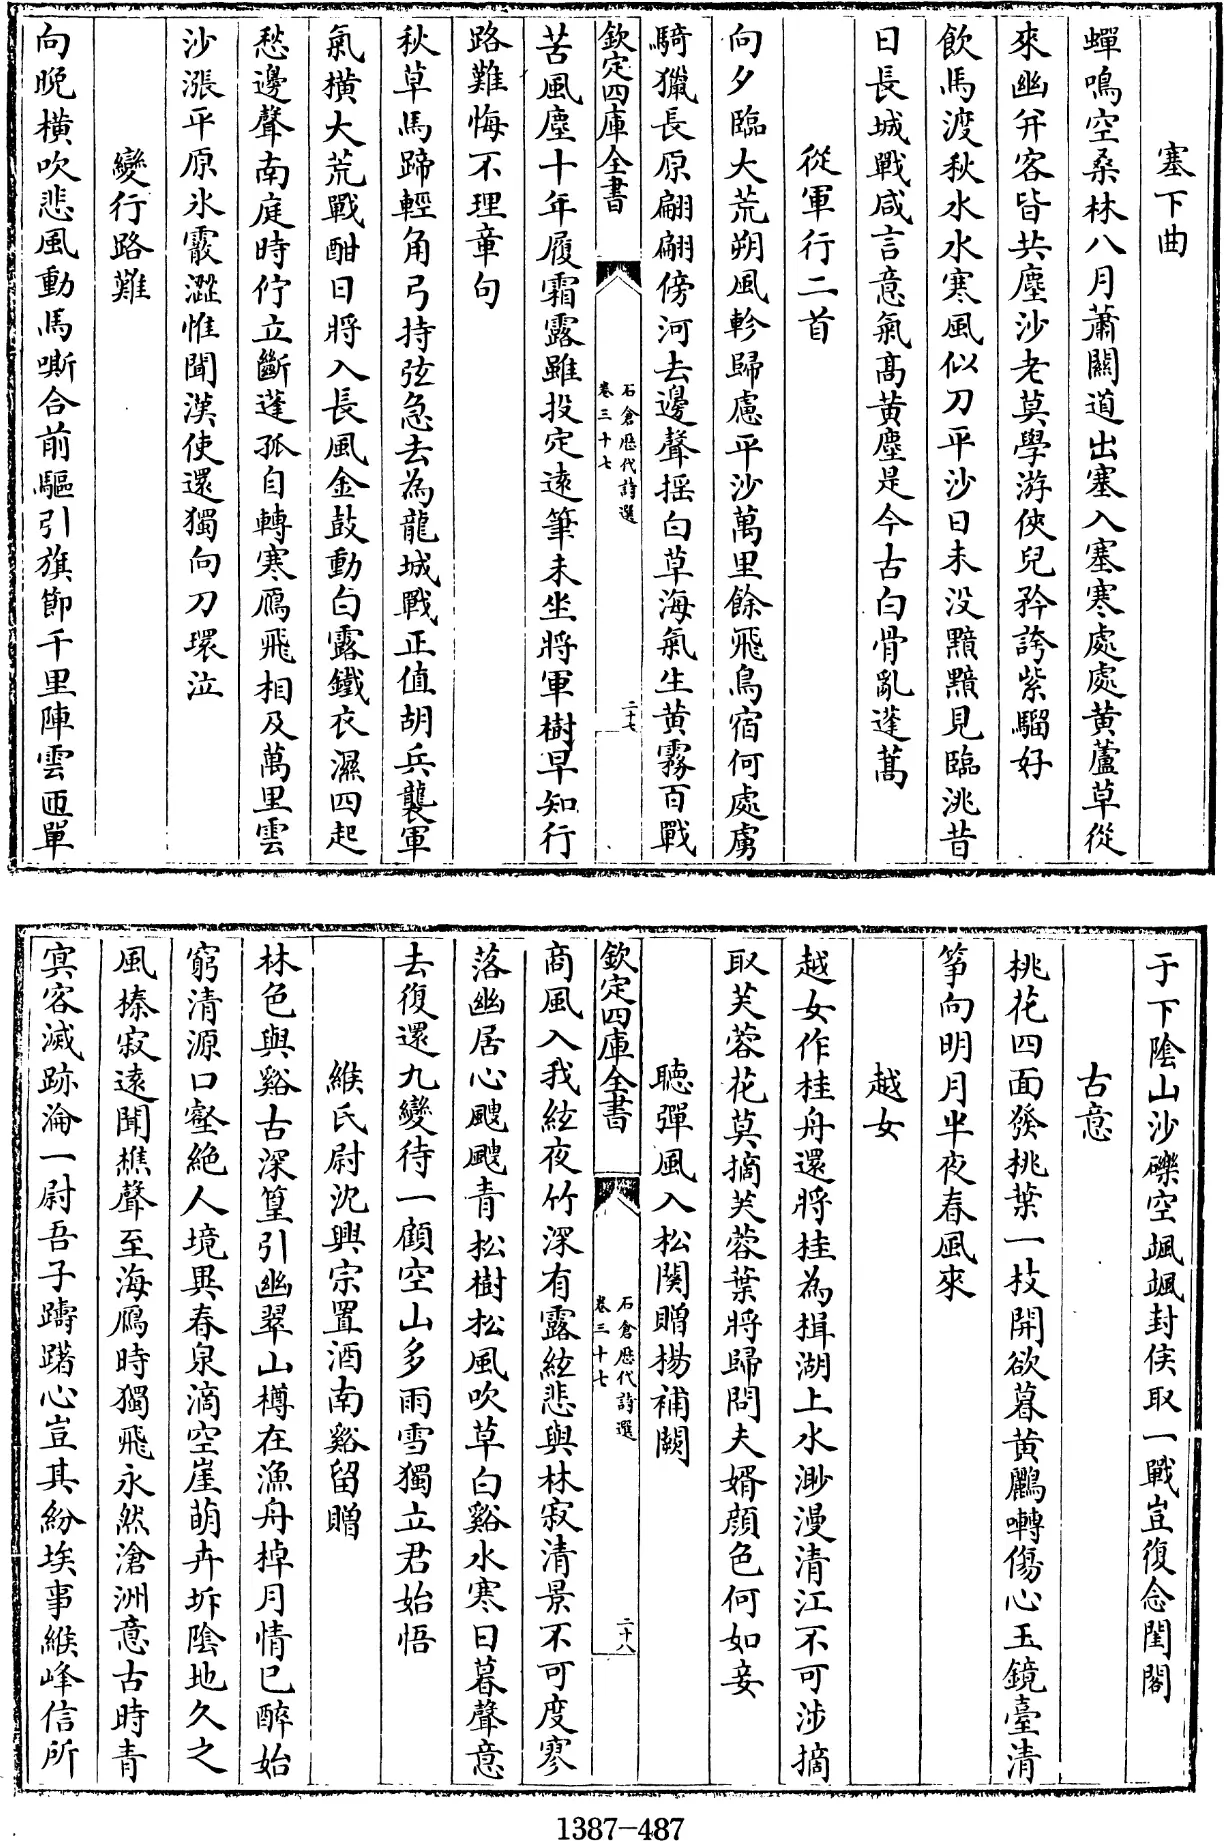 塞下曲
蟬鳴空桑林八月蕭關道出塞入塞寒處處黄蘆草從
來幽并客皆共塵沙老莫學游俠兒矜誇紫騮好
飲馬渡秋水水寒風似刀平沙日未没黯黯見臨洮昔
日長城戰咸言意氣高黄塵是今古白骨亂蓬蒿
從軍行二首
向夕臨大荒朔風軫歸慮平沙萬里餘飛鳥宿何處虜
騎獵長原翩翩傍河去邊聲揺白草海氣生黄霧百戰
欽定四庫全書
石倉歴代詩選
卷三十七
二十七
苦風塵十年履霜露雖投定逺筆未坐將軍樹早知行
路難悔不理章句
秋草馬蹄輕角弓持弦急去為龍城戰正值胡兵襲軍
氣横大荒戰酣日將入長風金鼓動白露鐵衣濕四起
愁邊聲南庭時佇立斷蓬孤自轉寒鴈飛相及萬里雲
沙漲平原氷霰澀惟聞漢使還獨向刀環泣
變行路難
向晚横吹悲風動馬嘶合前驅引旗節千里陣雲匝單
于下陰山沙礫空颯颯封侯取一戰豈復念閨閣
古意
桃花四面發桃葉一枝開欲暮黄鸝囀傷心玉鏡臺清
筝向明月半夜春風來
越女
越女作桂舟還將桂為楫湖上水渺漫清江不可涉摘
取芙蓉花莫摘芙蓉葉將歸問夫婿顔色何如妾
聴彈風入松闋贈楊補闕
欽定四庫全書
石倉歴代詩選
卷三十七
二十八
商風入我絃夜竹深有露絃悲與林寂清景不可度寥
落幽居心颼颼青松樹松風吹草白谿水寒日暮聲意
去復還九變待一顧空山多雨雪獨立君始悟
緱氏尉沈興宗置酒南谿留贈
林色與谿古深篁引幽翠山樽在漁舟棹月情已醉始
窮清源口壑絶人境異春泉滴空崖萌卉坼陰地久之
風榛寂逺聞樵聲至海鴈時獨飛永然滄洲意古時青
㝠容滅跡淪一尉吾子躊躇心豈其紛埃事緱峰信所
1387-487